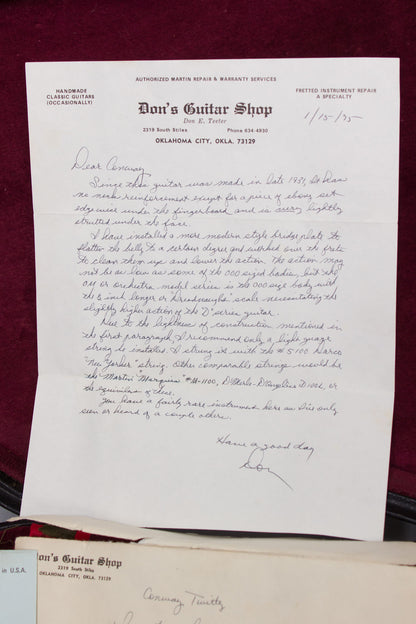 AUTHORIZED MARTIN REPAIR & WARRANTY SERVICES
HANDMADE
CLASSIC GUITARS
(OCCASIONALLY)
FRETTED INSTRUMENT REPAIR
A SPECIALTY
Don's Guitar Shop
Don E. Teeter
2319 South Stiles Phone 634-4930
OKLAHOMA CITY, OKLA. 73129
1/15/95
Dear Conway
Since this guitar was made in late 1931, it has
no neck reinforcement except for a piece of ebony set
edgewise under the fingerboard, and is very lightly
strutted under the face.
I have installed a more modern style bridge plate to
flatten the belly to a certain degree and worked over the frets
to clean them up and lower the action. The action may
not be as low as some of the 000 sized bodies, but the
OM or orchestra model series is the 000 size body with
the inch longer or Dreadnaught scale necessitating the
slightly higher action of the "D" series guitar.
Due to the lightness of construction mentioned in
the first paragraph, I recommend only a light guage
string be installed. I strung it with the #5100 Darco
"New Yorker" string. Other comparable strings would be
the Martin "Marquis" #M-1100, D'Merle-D'Angelico D100L, or
the equivilent of these.
You have a fairly rare instrument here as I've only
seen or heard of a couple others.
Have a good day
Don
in U.S.A.
Don's Guitar Shop
2319 South Stiles
OKLAHOMA CITY, OKLA. 73129
Conway Twitty